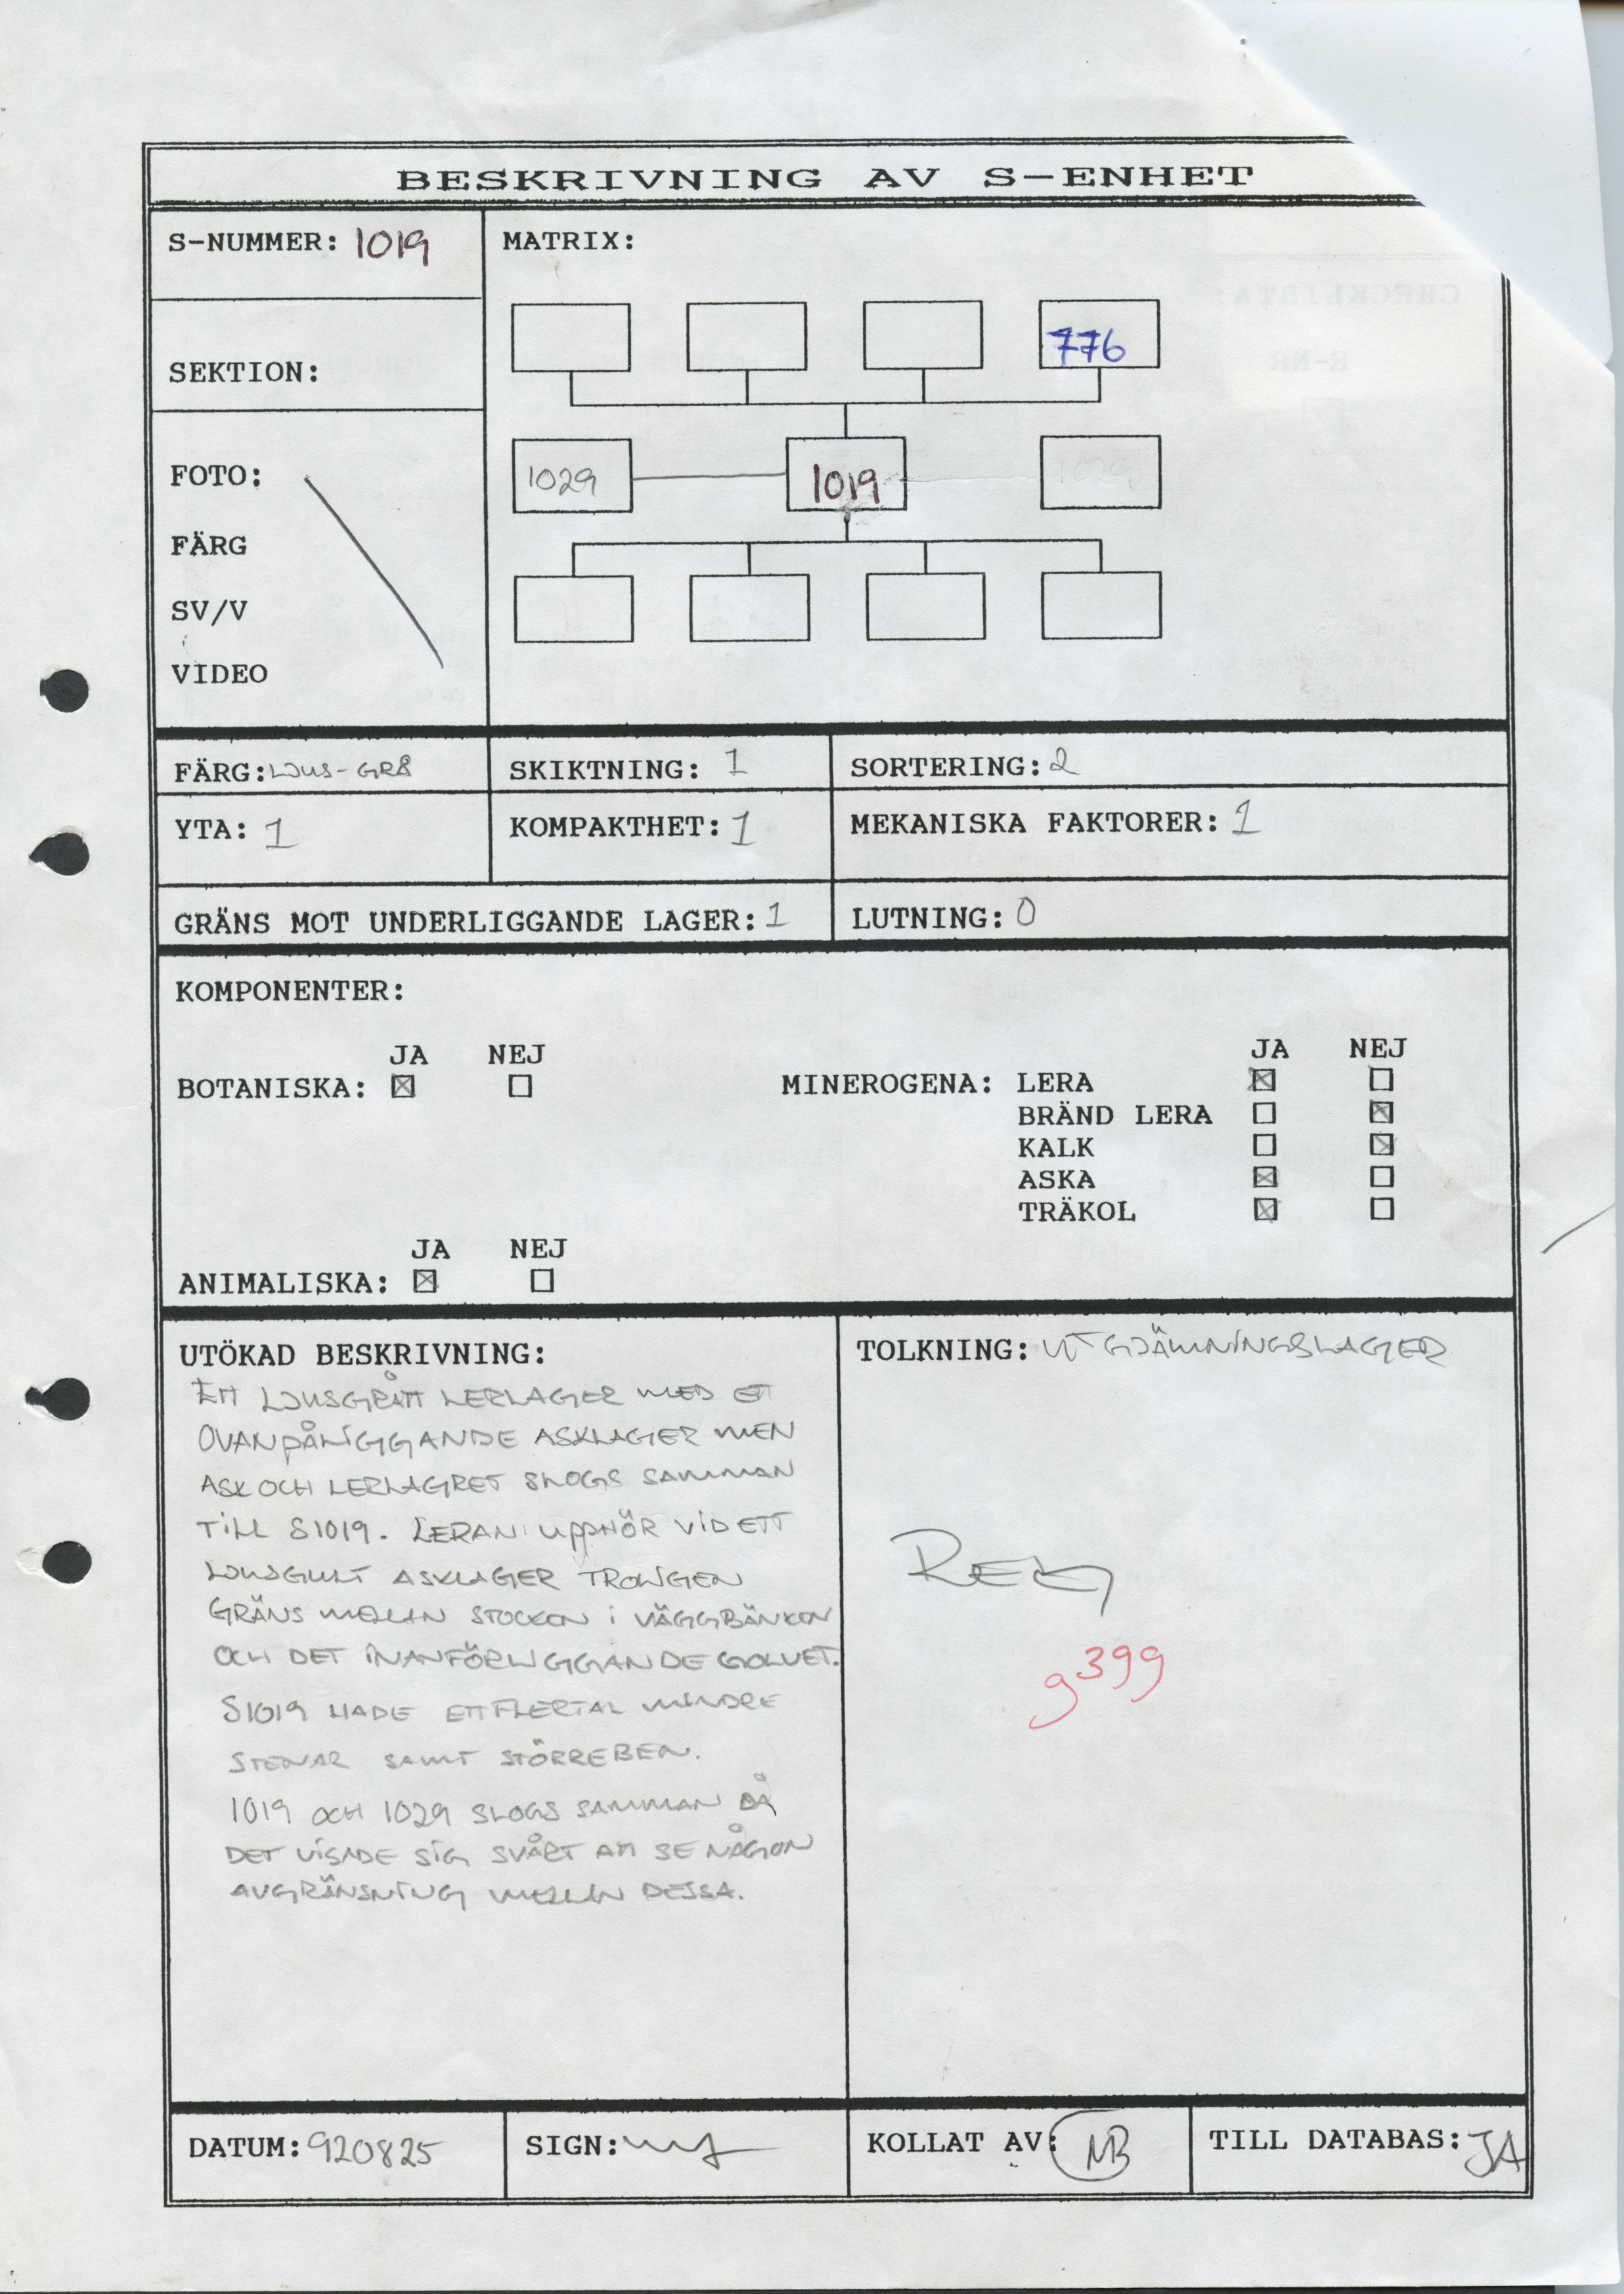 BESKRIVNING AV S-ENHET
S-NUMMER: 1019
MATRIX:
776
SEKTION:
1029
1019
FOTO:
FÄRG
SV/V
VIDEO
FÄRG: LJUS-GRÅ
SKIKTNING: 1
SORTERING: 2
YTA: 1
KOMPAKTHET: 1
MEKANISKA FAKTORER: 1
GRÄNS MOT UNDERLIGGANDE LAGER: 1
LUTNING: 0
KOMPONENTER:
JA NEJ
BOTANISKA:
JA NEJ
MINEROGENA: LERA
BRÄND LERA
KALK
ASKA
TRÄKOL
JA NEJ
ANIMALISKA:
UTÖKAD BESKRIVNING:
ETT LJUSGRÅTT LERLAGER MED ETT
OVANPÅLIGGANDE ASKLAGER MEN
ASK OCH LERLAGRET SLOGS SAMMAN
TILL S1019. LERAN UPPHÖR VID ETT
LJUSGULT ASKLAGER TROLIGEN
GRÄNS MELLAN STOCKEN I VÄGGBÄNKEN
OCH DET INANFÖRLIGGANDE GOLVET.
S1019 HADE ETT FLERTAL MINDRE
STENAR SAMT STÖRRE BEN.
1019 OCH 1029 SLOGS SAMMAN DÅ
DET VISADE SIG SVÅRT ATT SE NÅGON
AVGRÄNSNING MELLAN DESSA.
TOLKNING: UTGJÄMNINGSLAGER
REG
g399
DATUM: 920825
SIGN:
KOLLAT AV: NB
TILL DATABAS: JA